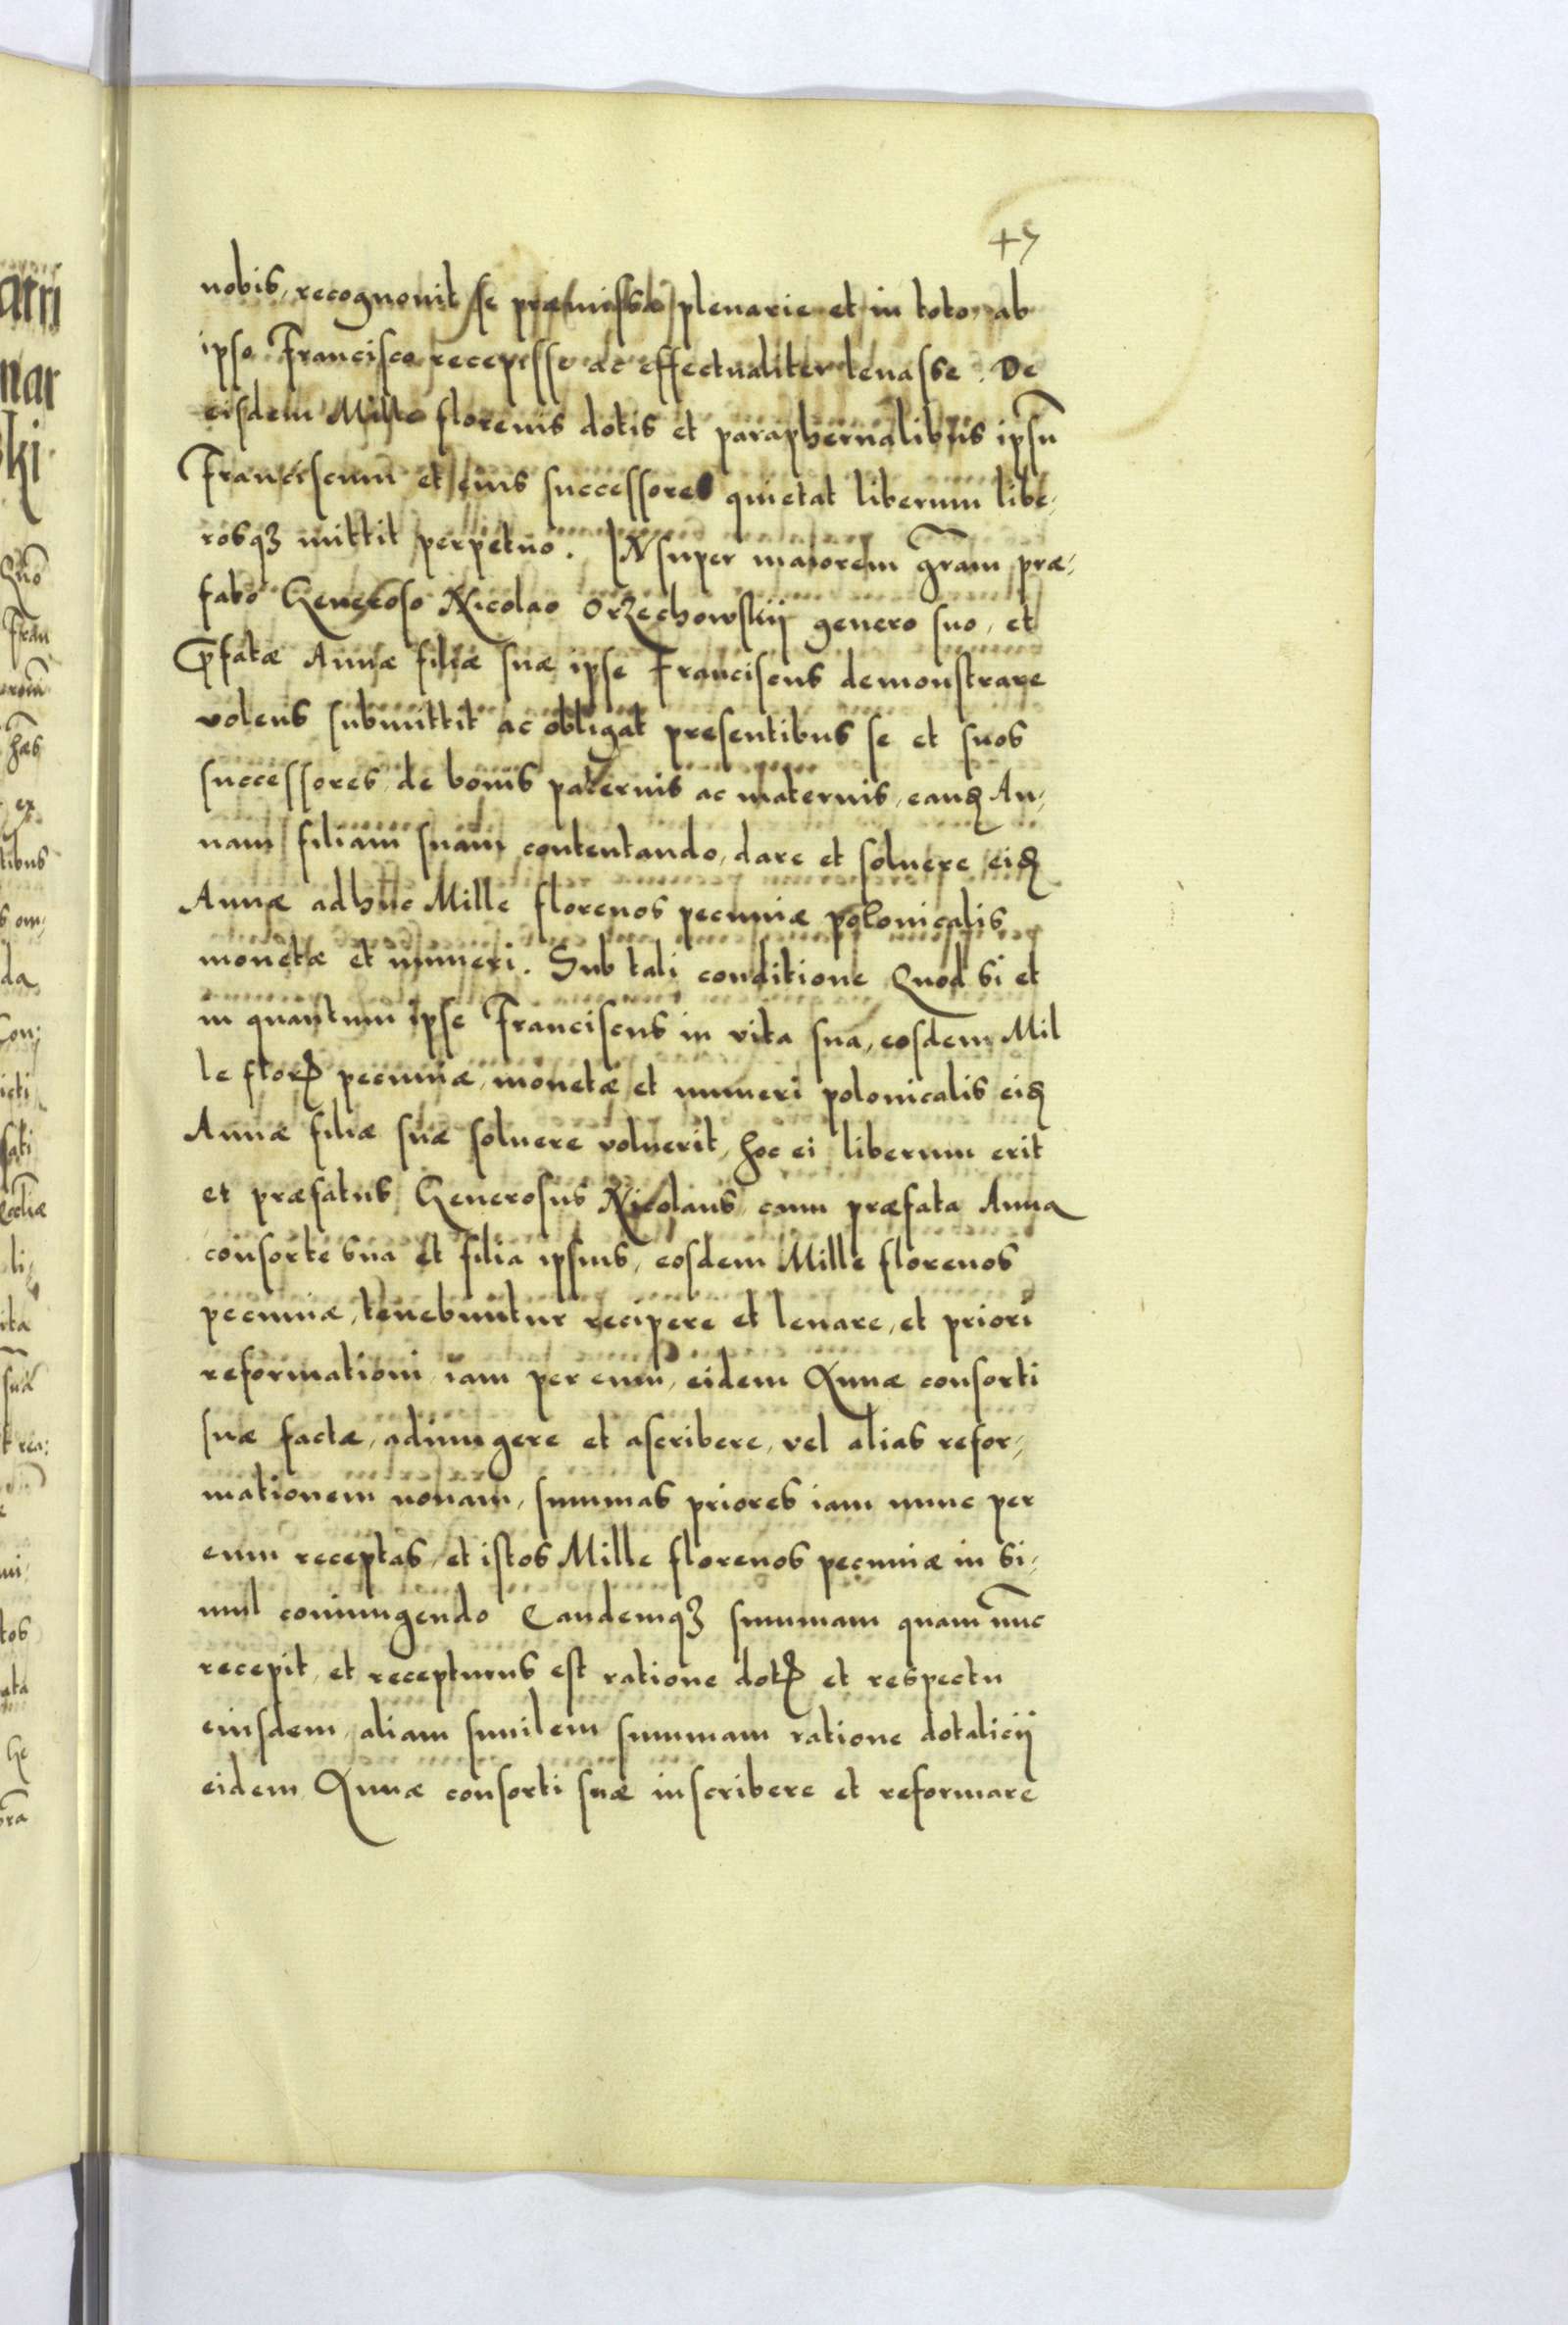 nobis, recognouit se præmissa plenarie et in toto ab
ipso Francisco recepisse ac effectualiter leuasse. De
eisdem Mille florenis dotis et paraphernalibus ipsū
Franciscum et eius successores quietat liberum libe,
rosqꝫ mittit perpetuo. INsuper maiorem gr̄am præ,
fato Generoso Nicolao Orzechowskij genero suo, et
p̄fatæ Annæ filiæ suæ ipse Franciscus demonstrare
volens submittit ac obligat presentibus se et suos
successores, de bonis paternis ac maternis, eandꝫ An,
nam filiam suam contentando, dare et soluere eidꝫ
Annæ adhuc Mille florenos pecuniæ polonicalis
monetæ et numeri. Sub tali conditione Quod si et
in quantum ipse Franciscus in vita sua, eosdem Mil
le floꝝ pecuniæ, monetæ et numeri polonicalis eidꝫ
Annæ filiæ suæ soluere voluerit, hoc ei liberum erit
et præfatus Generosus Nicolaus cum præfata Anna
consorte sua et filia ipsius, eosdem Mille florenos
pecuniæ, tenebuntur recipere et leuare, et priori
reformationi iam per eum, eidem Annæ consorti
suæ factæ, adiungere et ascribere, vel alias refor,
mationem nouam, summas priores iam nunc per
eum receptas, et istos Mille florenos pecuniæ in si,
mul coniungendo Eandemqꝫ summam quam nūc
recepit, et recepturus est ratione dotꝭ et respectu
eiusdem, aliam similem summam ratione dotalicij
eidem Annæ consorti suæ inscribere et reformare